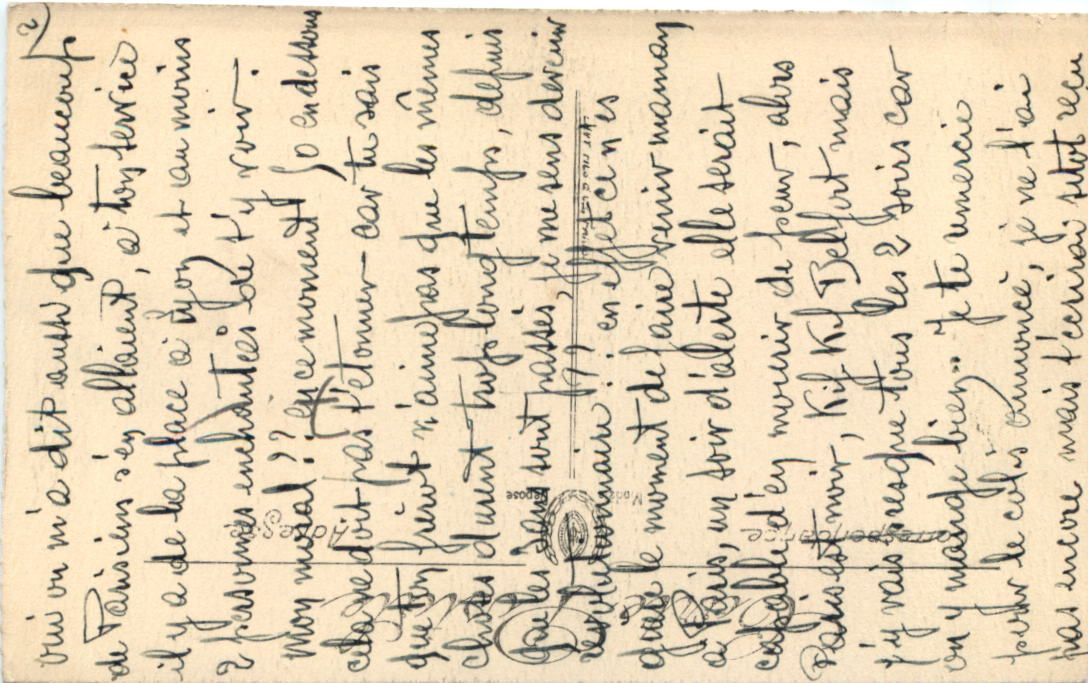 2)
oui on m'a dit aussi que beaucoup
de Parisiens s'en allaient, à ton service
il y a de la place à Lyon et au moins
2 personnes enchantées de t'y voir.
Mon moral ?? En ce moment 50 en dessous
cela ne doit pas t'étonner car tu sais
que ton frérot n'aime pas que les mêmes
choses durent trop longtemps, depuis
que les sont passés je me sens devenir
révolutionnaire !!! en effet ce n'es
guère le moment de faire venir maman
à Paris, un soir d'alerte elle serait
capable d'en mourir de peur, alors
Paris est noir, Kif Kif Belfort mais
j'y vais presque tous les 2 soirs car
on y mange bien. Je te remercie
pour le colis annoncé, je ne l'ai
pas encore mais t'écrirai sitôt reçu
Carte Postale
Correspondance
Adresse
Marque
Déposé